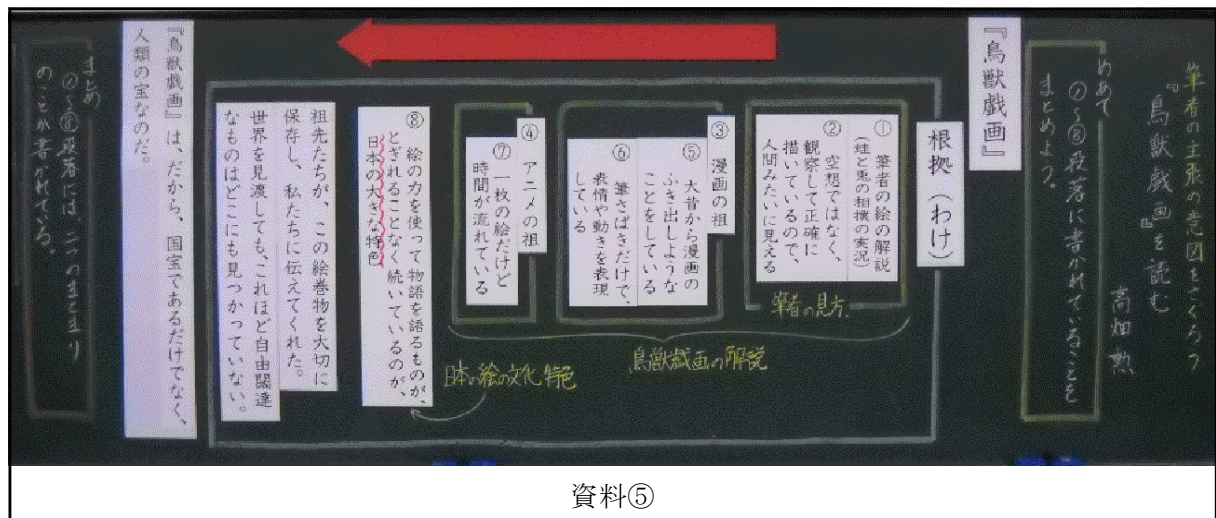 筆者の主張の意図をさぐろう
『鳥獣戯画』を読む
高畑勲
めあて
①～⑧段落に書かれていることを
まとめよう。
『鳥獣戯画』
根拠（わけ）
① 筆者の絵の解説
（蛙と兎の相撲の実況）
② 空想ではなく、
観察して正確に
描いているので、
人間みたいに見える
筆者の見方
③ 漫画の祖
⑤ 大昔から漫画の
ふき出しような
ことをしている
⑥ 筆さばきだけで、
表情や動きを表現
している
④ アニメの祖
⑦ 一枚の絵だけど
時間が流れている
鳥獣戯画の解説
⑧ 絵の力を使って物語を語るものが、
とぎれることなく続いているのが、
日本の大きな特色
日本の絵の文化 特色
祖先たちが、この絵巻物を大切に
保存し、私たちに伝えてくれた。
世界を見渡しても、これほど自由闊達
なものはどこにも見つかっていない。
『鳥獣戯画』は、だから、国宝であるだけでなく、
人類の宝なのだ。
まとめ
①～⑧段落には、二つのまとまり
のことが書かれている。
資料⑤